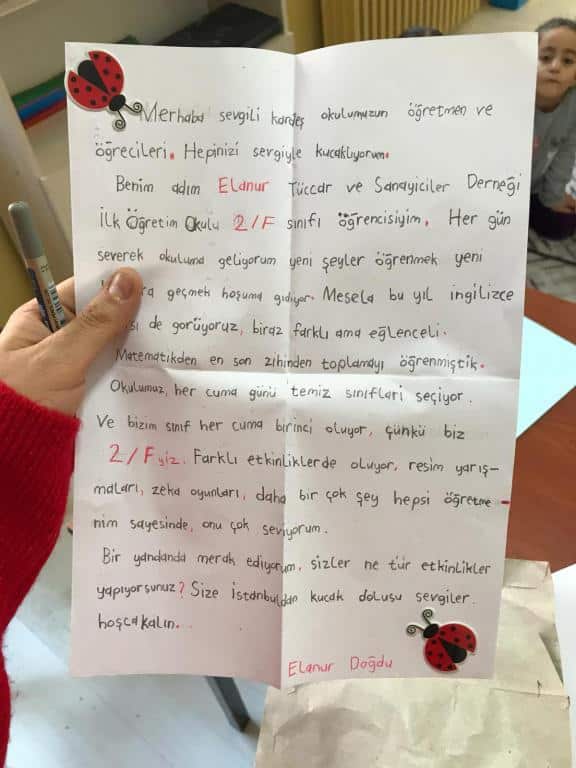 Merhaba sevgili kardeş okulumuzun öğretmen ve
öğrecileri. Hepinizi sevgiyle kucaklıyorum.
Benim adım Elanur Tüccar ve Sanayiciler Derneği
İlk Öğretim Okulu 2/F sınıfı öğrencisiyim. Her gün
severek okuluma geliyorum yeni şeyler öğrenmek yeni
geçmek hoşuma gidiyor. Mesela bu yıl ingilizce
de görüyoruz, biraz farklı ama eğlenceli.
Matematikden en son zihinden toplamayı öğrenmiştik.
Okulumuz, her cuma günü temiz sınıfları seçiyor.
Ve bizim sınıf her cuma birinci oluyor, çünkü biz
2/Fyiz. Farklı etkinliklerde oluyor, resim yarış-
maları, zeka oyunları, daha bir çok şey hepsi öğretme-
nim sayesinde, onu çok seviyorum.
Bir yandanda merak ediyorum, sizler ne tür etkinlikler
yapıyorsunuz? Size İstanbuldan kucak dolusu sevgiler.
hoşcakalın.
Elanur Doğdu